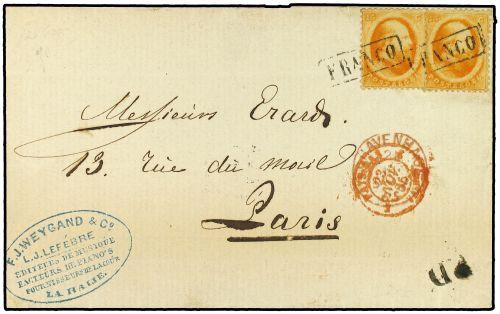 FRANCO FRANCO
Messieurs Erard
13, rue du mail
Paris
F.J. WEYGAND & Cº
L.J. LEFÉBRE
EDITEURS DE MUSIQUE
FACTEURS DE PIANO'S
FOURNISSEURS DE LA COUR
LA HAIE.
PD